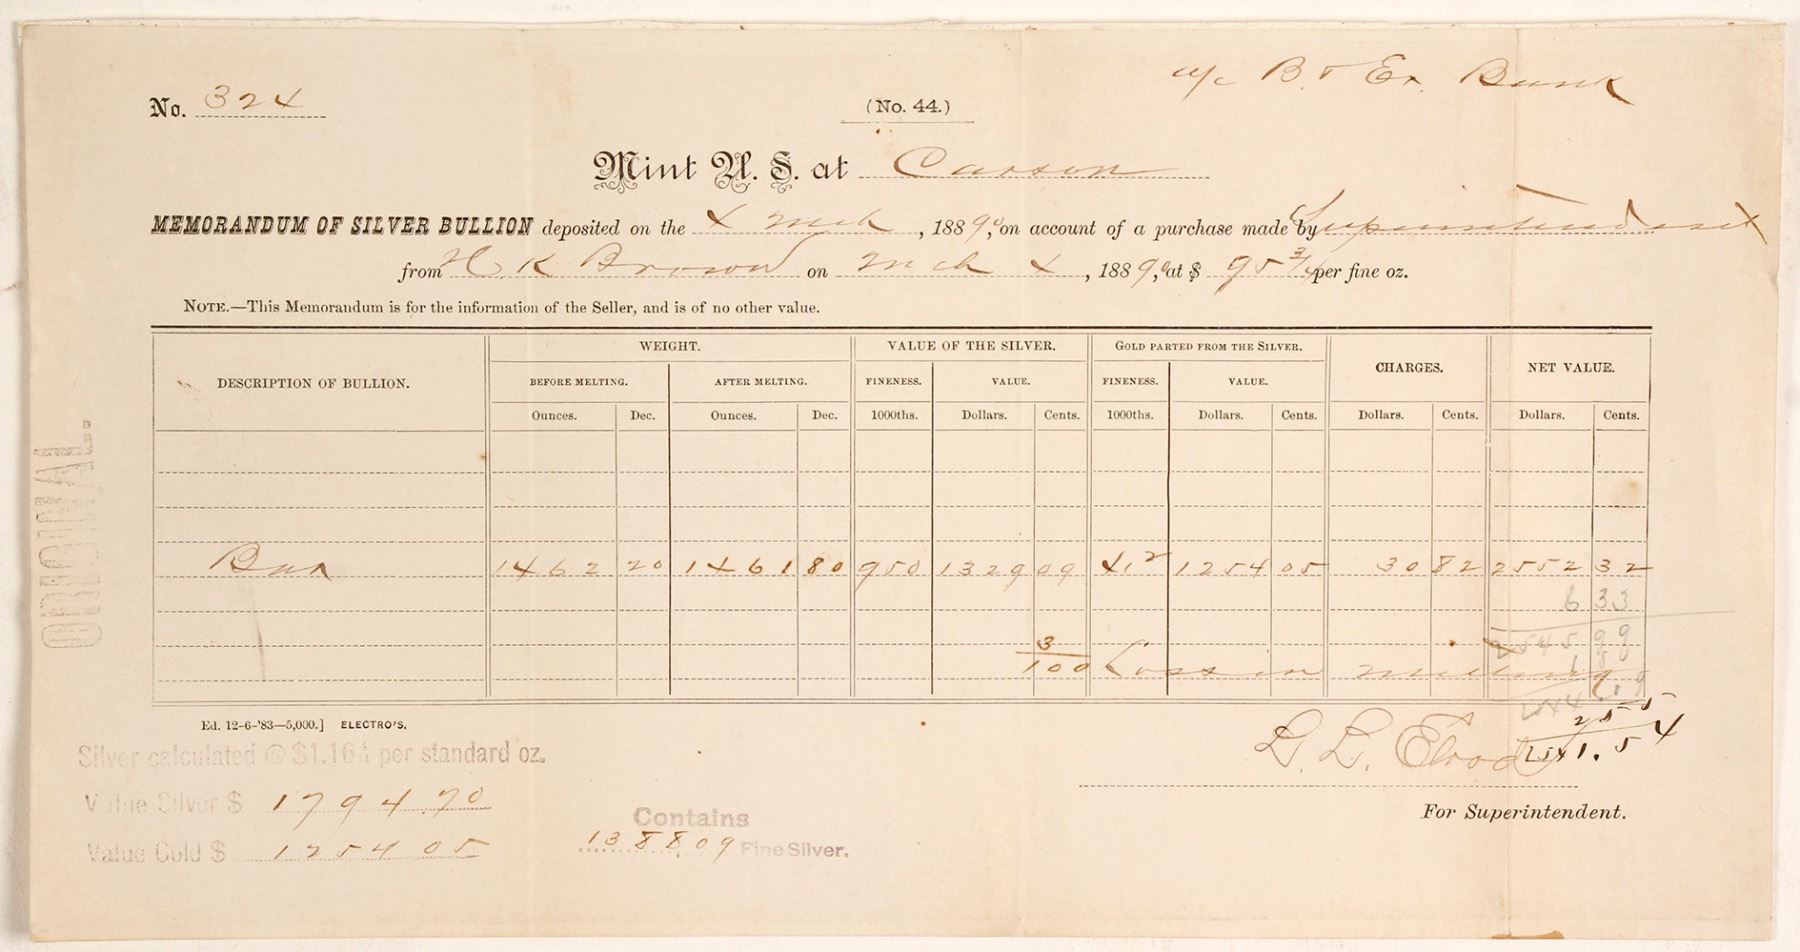 a/c B. & Ex. Bank
No. 324
(No. 44.)
Mint U. S. at Carson
MEMORANDUM OF SILVER BULLION deposited on the 4 Mch, 1889,⁰ on account of a purchase made by Superintendent
from H. K Brown on Mch 4, 1889,⁰ at $ 95 3/4 per fine oz.
NOTE.—This Memorandum is for the information of the Seller, and is of no other value.
DESCRIPTION OF BULLION. WEIGHT. VALUE OF THE SILVER. GOLD PARTED FROM THE SILVER. CHARGES. NET VALUE.
BEFORE MELTING. AFTER MELTING. FINENESS. VALUE. FINENESS. VALUE.
Ounces. Dec. Ounces. Dec. 1000ths. Dollars. Cents. 1000ths. Dollars. Cents. Dollars. Cents. Dollars. Cents.
Bar 1462 20 1461 80 950 1329 09 41 2 1254 05 30 82 2552 32
6 33
2545 99
3/100 Loss in melting
ORIGINAL.
Ed. 12-6-'83—5,000.] ELECTRO'S.
2 5 5
2541.54
L. L. Elrod
For Superintendent.
Silver calculated @ $1.16 4/11 per standard oz.
Value Silver $ 1794.70
Value Gold $ 1254 05
Contains
1388.09 Fine Silver.